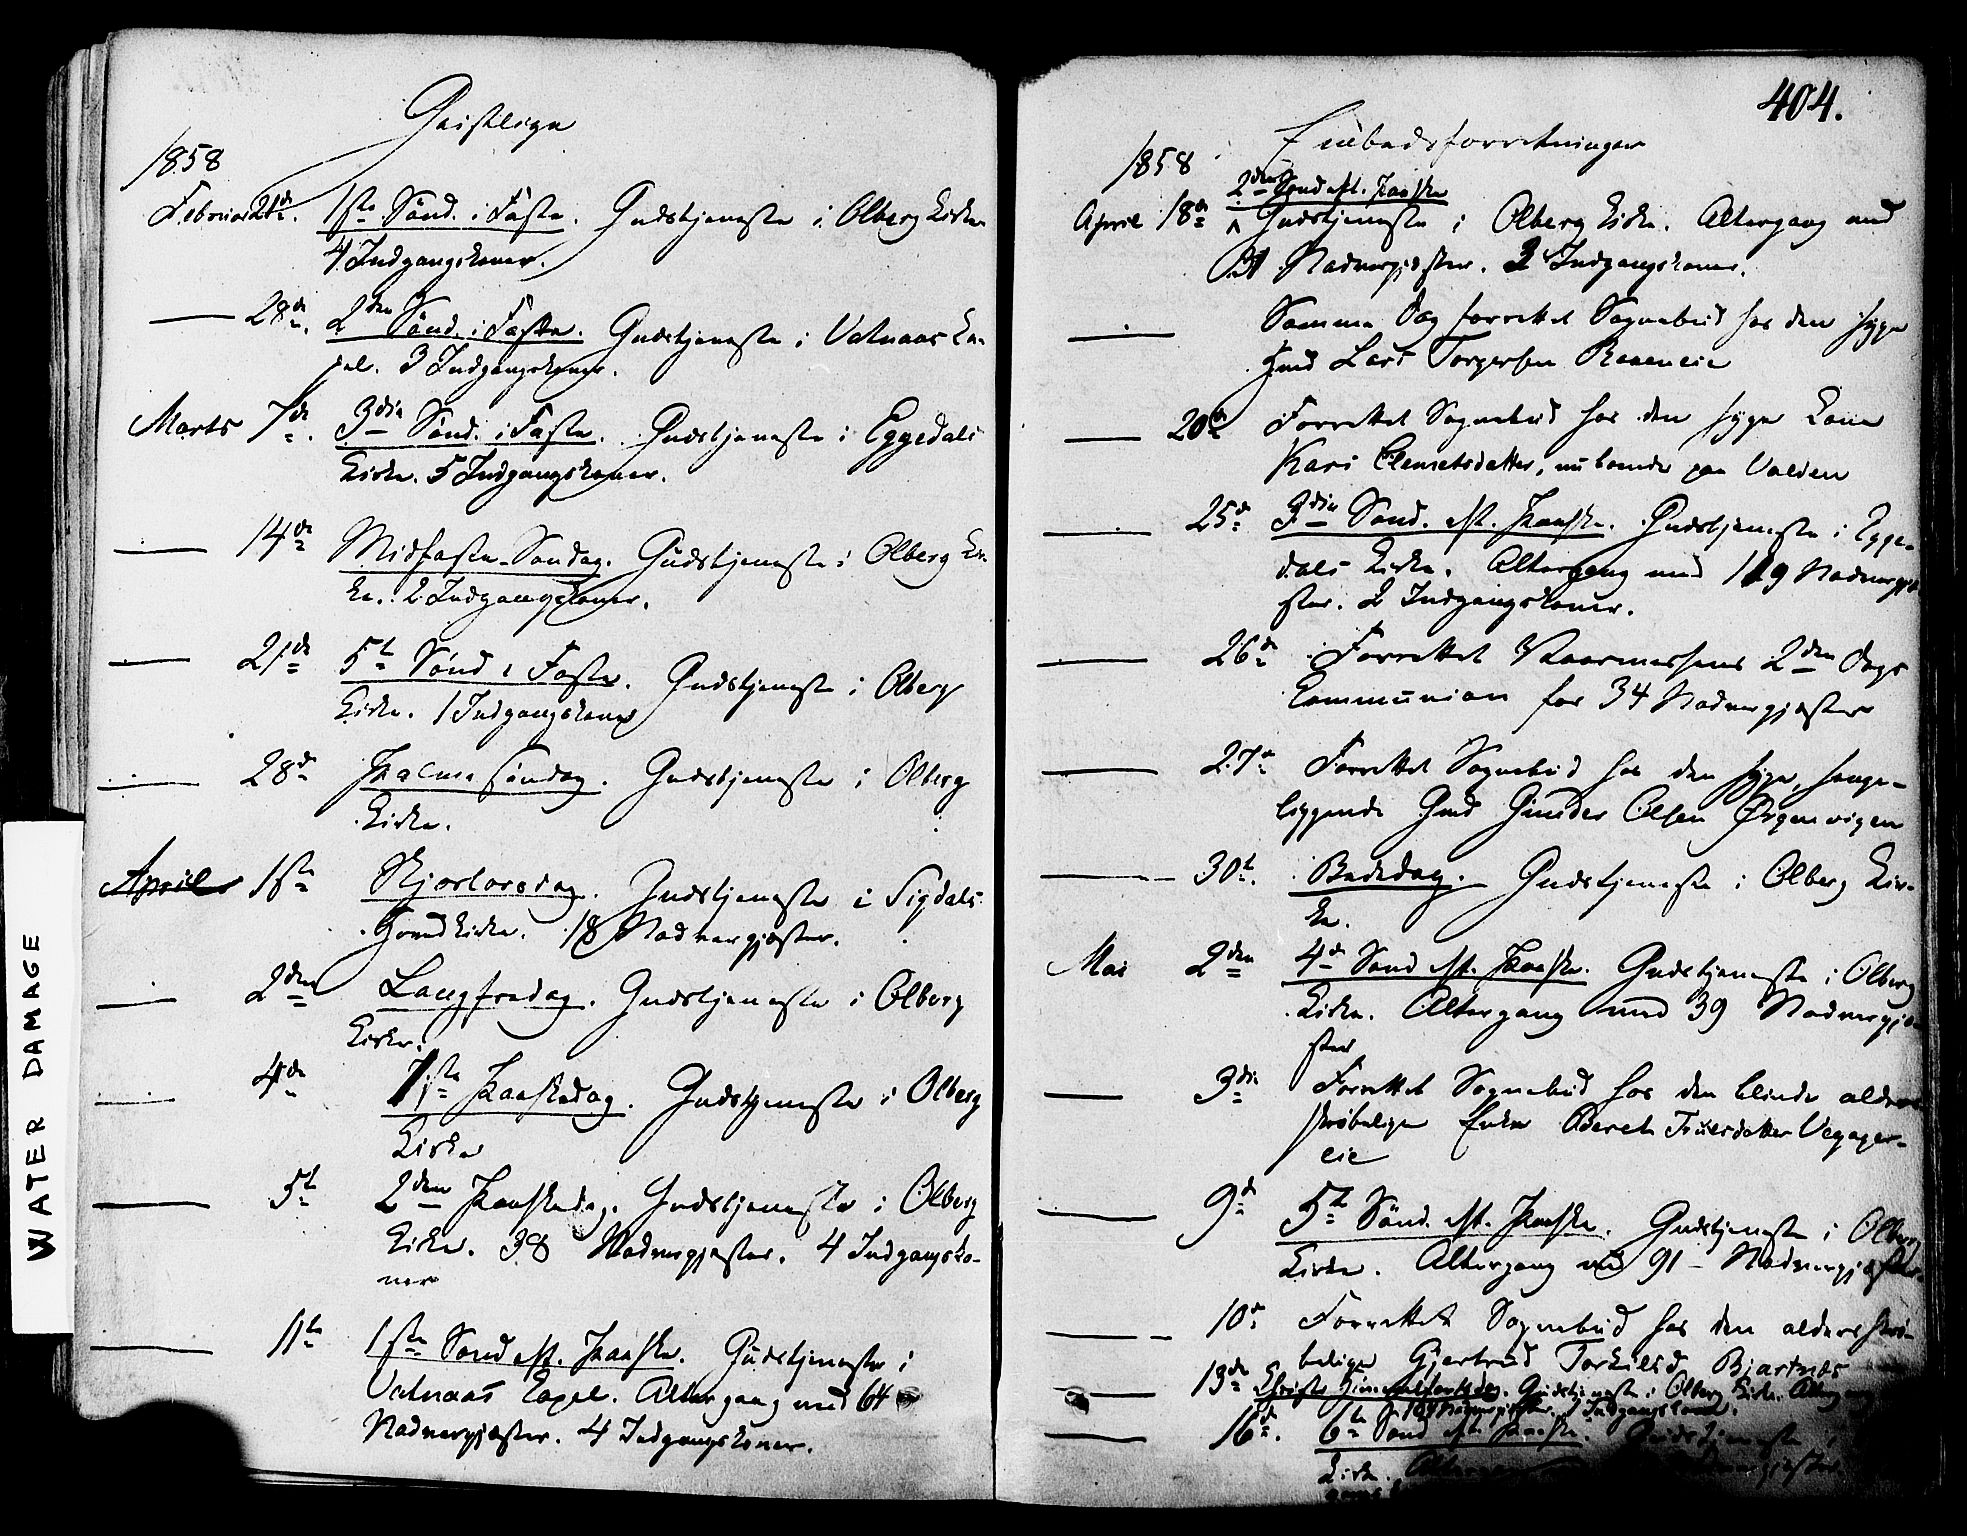 WATER DAMAGE
Geistlige
1858
Februar 21de. 1ste Sönd. i Faste. Gudstjeneste i Olberg Kirke.
4 Indgangskoner.
28de. 2den Sönd. i Faste. Gudstjeneste i Vatnaas Ka-
pel. 3 Indgangskoner.
Marts 7de. 3die Sönd. i Faste. Gudstjeneste i Eggedals
Kirke. 5 Indgangskoner.
14de Midfaste-Søndag. Gudstjeneste i Olberg Kir-
ke. 2 Indgangskoner.
21de 5te Sönd i Faste. Gudstjeneste i Olberg
Kirke. 1 Indgangskone
28de Palme söndag. Gudstjeneste i Olberg
Kirke.
April 1ste Skjærtorsdag. Gudstjeneste i Sigdals
Hovedkirke. 18 Nadvergjæster.
2den Langfredag. Gudstjeneste i Olberg
Kirke.
4de 1ste Paaskedag. Gudstjeneste i Olberg
Kirke
5te 2den Paaskedag. Gudstjeneste i Olberg
Kirke. 38 Nadvergjæster. 4 Indgangsko-
ner
11te 1ste Sönd eft. Paaske. Gudstjeneste i
Vatnaas Capel. Altergang med 64
Nadvergjæster. 4 Indgangskoner.
404.
Embedsforretninger
1858
2den Sönd eft. Paaske
April 18de Gudstjeneste i Olberg Kirke. Altergang med
31 Nadvergjæster. 2 Indgangskoner.
Samme Dag forrettet Sognebud hos den syge
Gmd Lars Torgersen
20de Forrettet Sognebud hos den syge Kone
Kari Clemetsdatter, nu boende paa Valden
25de 3die Sönd. eft. Paaske. Gudstjeneste i Egge-
dals Kirke. Altergang med 119 Nadvergjæ-
ster. 2 Indgangskoner.
26de Forrettet Vaarmessens 2den Dags
Communion for 34 Nadvergjæster
27de Forrettet Sognebud hos den syge, senge-
liggende Gmd Gunder Olsen Ørgenvigen
30te. Bededag. Gudstjeneste i Olberg Kir-
ke.
Mai 2den 4de Sönd eft. Paaske. Gudstjeneste i Olberg
Kirke. Altergang med 39 Nadvergjæ-
ster
3die Forrettet Sognebud hos den blinde alders-
skrøbelige Enke Beret Truelsdatter
eie
9de 5te Sönd. eft. Paaske. Gudstjeneste i Olberg
Kirke. Altergang med 91 - Nadvergjæster.
10de Forrettet Sognebud hos den alderskrø-
belige Gjertrud Torkilsd. Bjørtnæs
13de Christi Himmelfartsdag. Gudstjeneste i Olberg Kirke. Altergang
Nadvergjæster. 1 Indgangskone.
16de. 6te Sönd eft. Paaske. Gudstjeneste i
Kirke. Nadvergjæster.